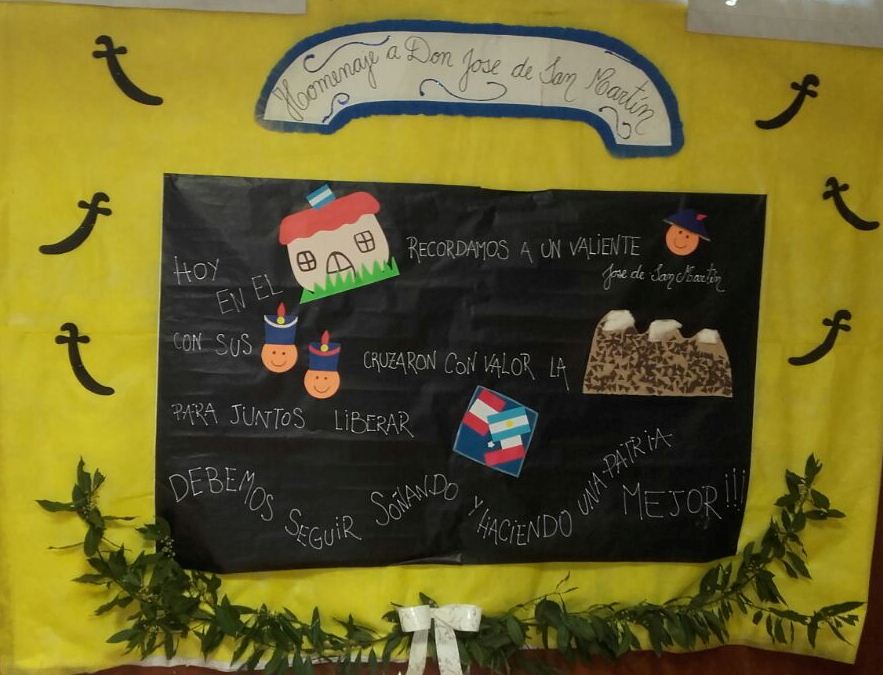 Homenaje a Don Jose de San Martín
HOY EN EL RECORDAMOS A UN VALIENTE
Jose de San Martín
CON SUS CRUZARON CON VALOR LA
PARA JUNTOS LIBERAR
DEBEMOS SEGUIR SOÑANDO Y HACIENDO UNA PATRIA MEJOR!!!